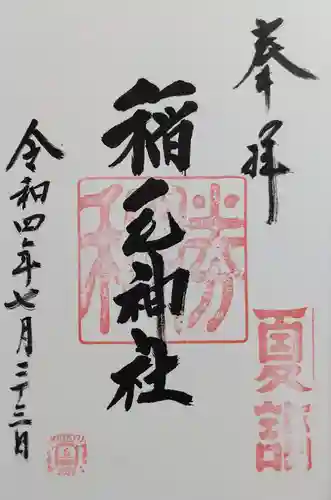 奉拝
夏詣
稲毛神社
令和四年七月二十三日